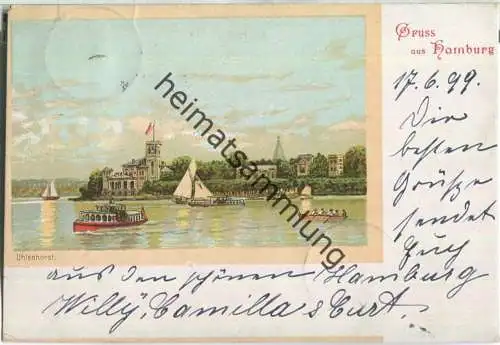 Gruss
aus Hamburg
17.6.99.
Die
besten
Grüsse
sendet
Euch
aus der schönen Hamburg
Willy, Camilla & Curt.
Uhlenhorst.
heimatsammlung.de